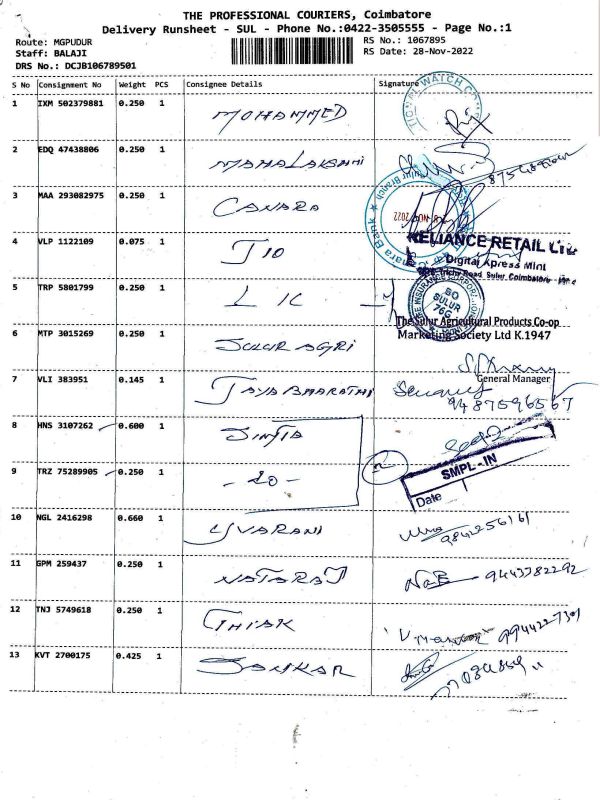 THE PROFESSIONAL COURIERS, Coimbatore
Delivery Runsheet - SUL - Phone No.:0422-3505555 - Page No.:1
Route: MGPUDUR
RS No.: 1067895
Staff: BALAJI
RS Date: 28-Nov-2022
DRS No.: DCJB106789501
S No Consignment No Weight PCS Consignee Details Signature
1 IXM 502379881 0.250 1 MOHAMMED
2 EDQ 47438806 0.250 1 MAHALAKSHMI
3 MAA 293082975 0.250 1 CANARA
4 VLP 1122109 0.075 1 JIO
RELIANCE RETAIL Ltd
Digital Xpress Mint
Trichy Road, Sulur, Coimbatore
5 TRP 5801799 0.250 1 LIC
SO
SULUR
76G
The Sulur Agricultural Products Co-op
Marketing Society Ltd K.1947
6 MTP 3015269 0.250 1 SULUR AGRI
General Manager
7 VLI 383951 0.145 1 JAYABHARATHI
9487596567
8 HNS 3107262 0.600 1
SMPL-IN
Date
9 TRZ 75289905 0.250 1 -do-
10 NGL 2416298 0.660 1 YUVARANI 9842256161
11 GPM 259437 0.250 1 NATARAJ 9443782292
12 TNJ 5749618 0.250 1
13 KVT 2700175 0.425 1 SANKAR